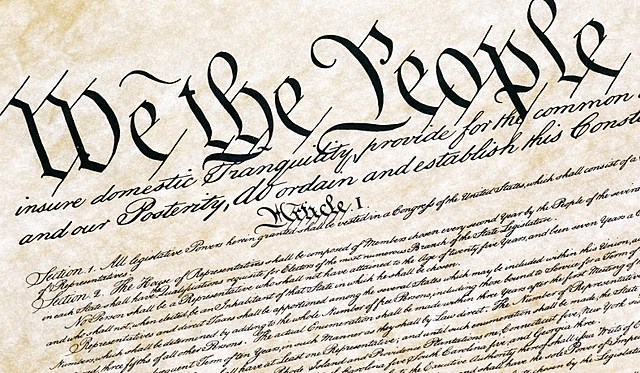 We the People
insure domestic Tranquility, provide for the common
and our Posterity, do ordain and establish this Const
Article. I.
Section. 1. All legislative Powers herein granted shall be vested in a Congress of the United States, which shall consist of a
of Representatives.
Section. 2. The House of Representatives shall be composed of Members chosen every second Year by the People of the several
in each State shall have the Qualifications requisite for Electors of the most numerous Branch of the State Legislature.
No Person shall be a Representative who shall not have attained to the Age of twenty five Years, and been seven Years a
and who shall not, when elected, be an Inhabitant of that State in which he shall be chosen.
Representatives and direct Taxes shall be apportioned among the several States which may be included within this Union,
Numbers, which shall be determined by adding to the whole Number of free Persons, including those bound to Service for a Term of
and three fifths of all other Persons. The actual Enumeration shall be made within three Years after the first Meeting of
subsequent Term of ten Years, in such Manner as they shall by Law direct. The Number of Representatives
shall have at Least one Representative; and until such enumeration shall be made, the State
Rhode Island and Providence Plantations one, Connecticut five, New York
Carolina five, South Carolina five, and Georgia three.
the Executive Authority thereof shall issue Writs of
and shall have the sole Power of Impe
chosen by the Legisl